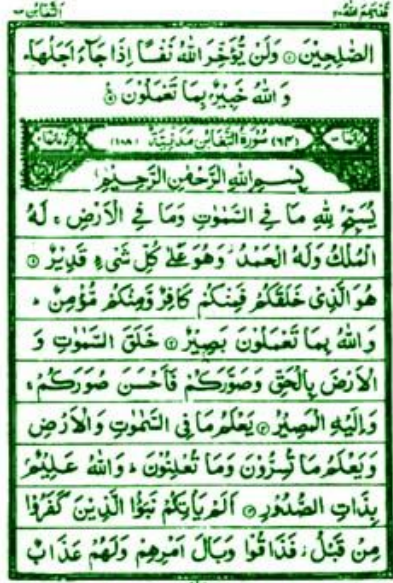 قد سمع الله ٢٨ التغابن ٦٤
الصّٰلِحِيْنَ ۞ وَلَنْ يُّؤَخِّرَ اللّٰهُ نَفْسًا اِذَا جَآءَ اَجَلُهَا ؕ
وَ اللّٰهُ خَبِيْرٌۢ بِمَا تَعْمَلُوْنَ ۞
(٦٤) سُوْرَةُ التَّغَابُنِ مَدَنِيَّةٌ (١٠٨)
بِسْمِ اللّٰهِ الرَّحْمٰنِ الرَّحِيْمِ
يُسَبِّحُ لِلّٰهِ مَا فِي السَّمٰوٰتِ وَمَا فِي الْاَرْضِ ۚ لَهُ
الْمُلْكُ وَلَهُ الْحَمْدُ ؗ وَهُوَ عَلٰى كُلِّ شَيْءٍ قَدِيْرٌ ۞
هُوَ الَّذِيْ خَلَقَكُمْ فَمِنْكُمْ كَافِرٌ وَّمِنْكُمْ مُّؤْمِنٌ ؕ
وَ اللّٰهُ بِمَا تَعْمَلُوْنَ بَصِيْرٌ ۞ خَلَقَ السَّمٰوٰتِ وَ
الْاَرْضَ بِالْحَقِّ وَصَوَّرَكُمْ فَاَحْسَنَ صُوَرَكُمْ ۚ
وَاِلَيْهِ الْمَصِيْرُ ۞ يَعْلَمُ مَا فِي السَّمٰوٰتِ وَالْاَرْضِ
وَيَعْلَمُ مَا تُسِرُّوْنَ وَمَا تُعْلِنُوْنَ ؕ وَاللّٰهُ عَلِيْمٌۢ
بِذَاتِ الصُّدُوْرِ ۞ اَلَمْ يَاْتِكُمْ نَبَؤُا الَّذِيْنَ كَفَرُوْا
مِنْ قَبْلُ ؗ فَذَاقُوْا وَبَالَ اَمْرِهِمْ وَلَهُمْ عَذَابٌ